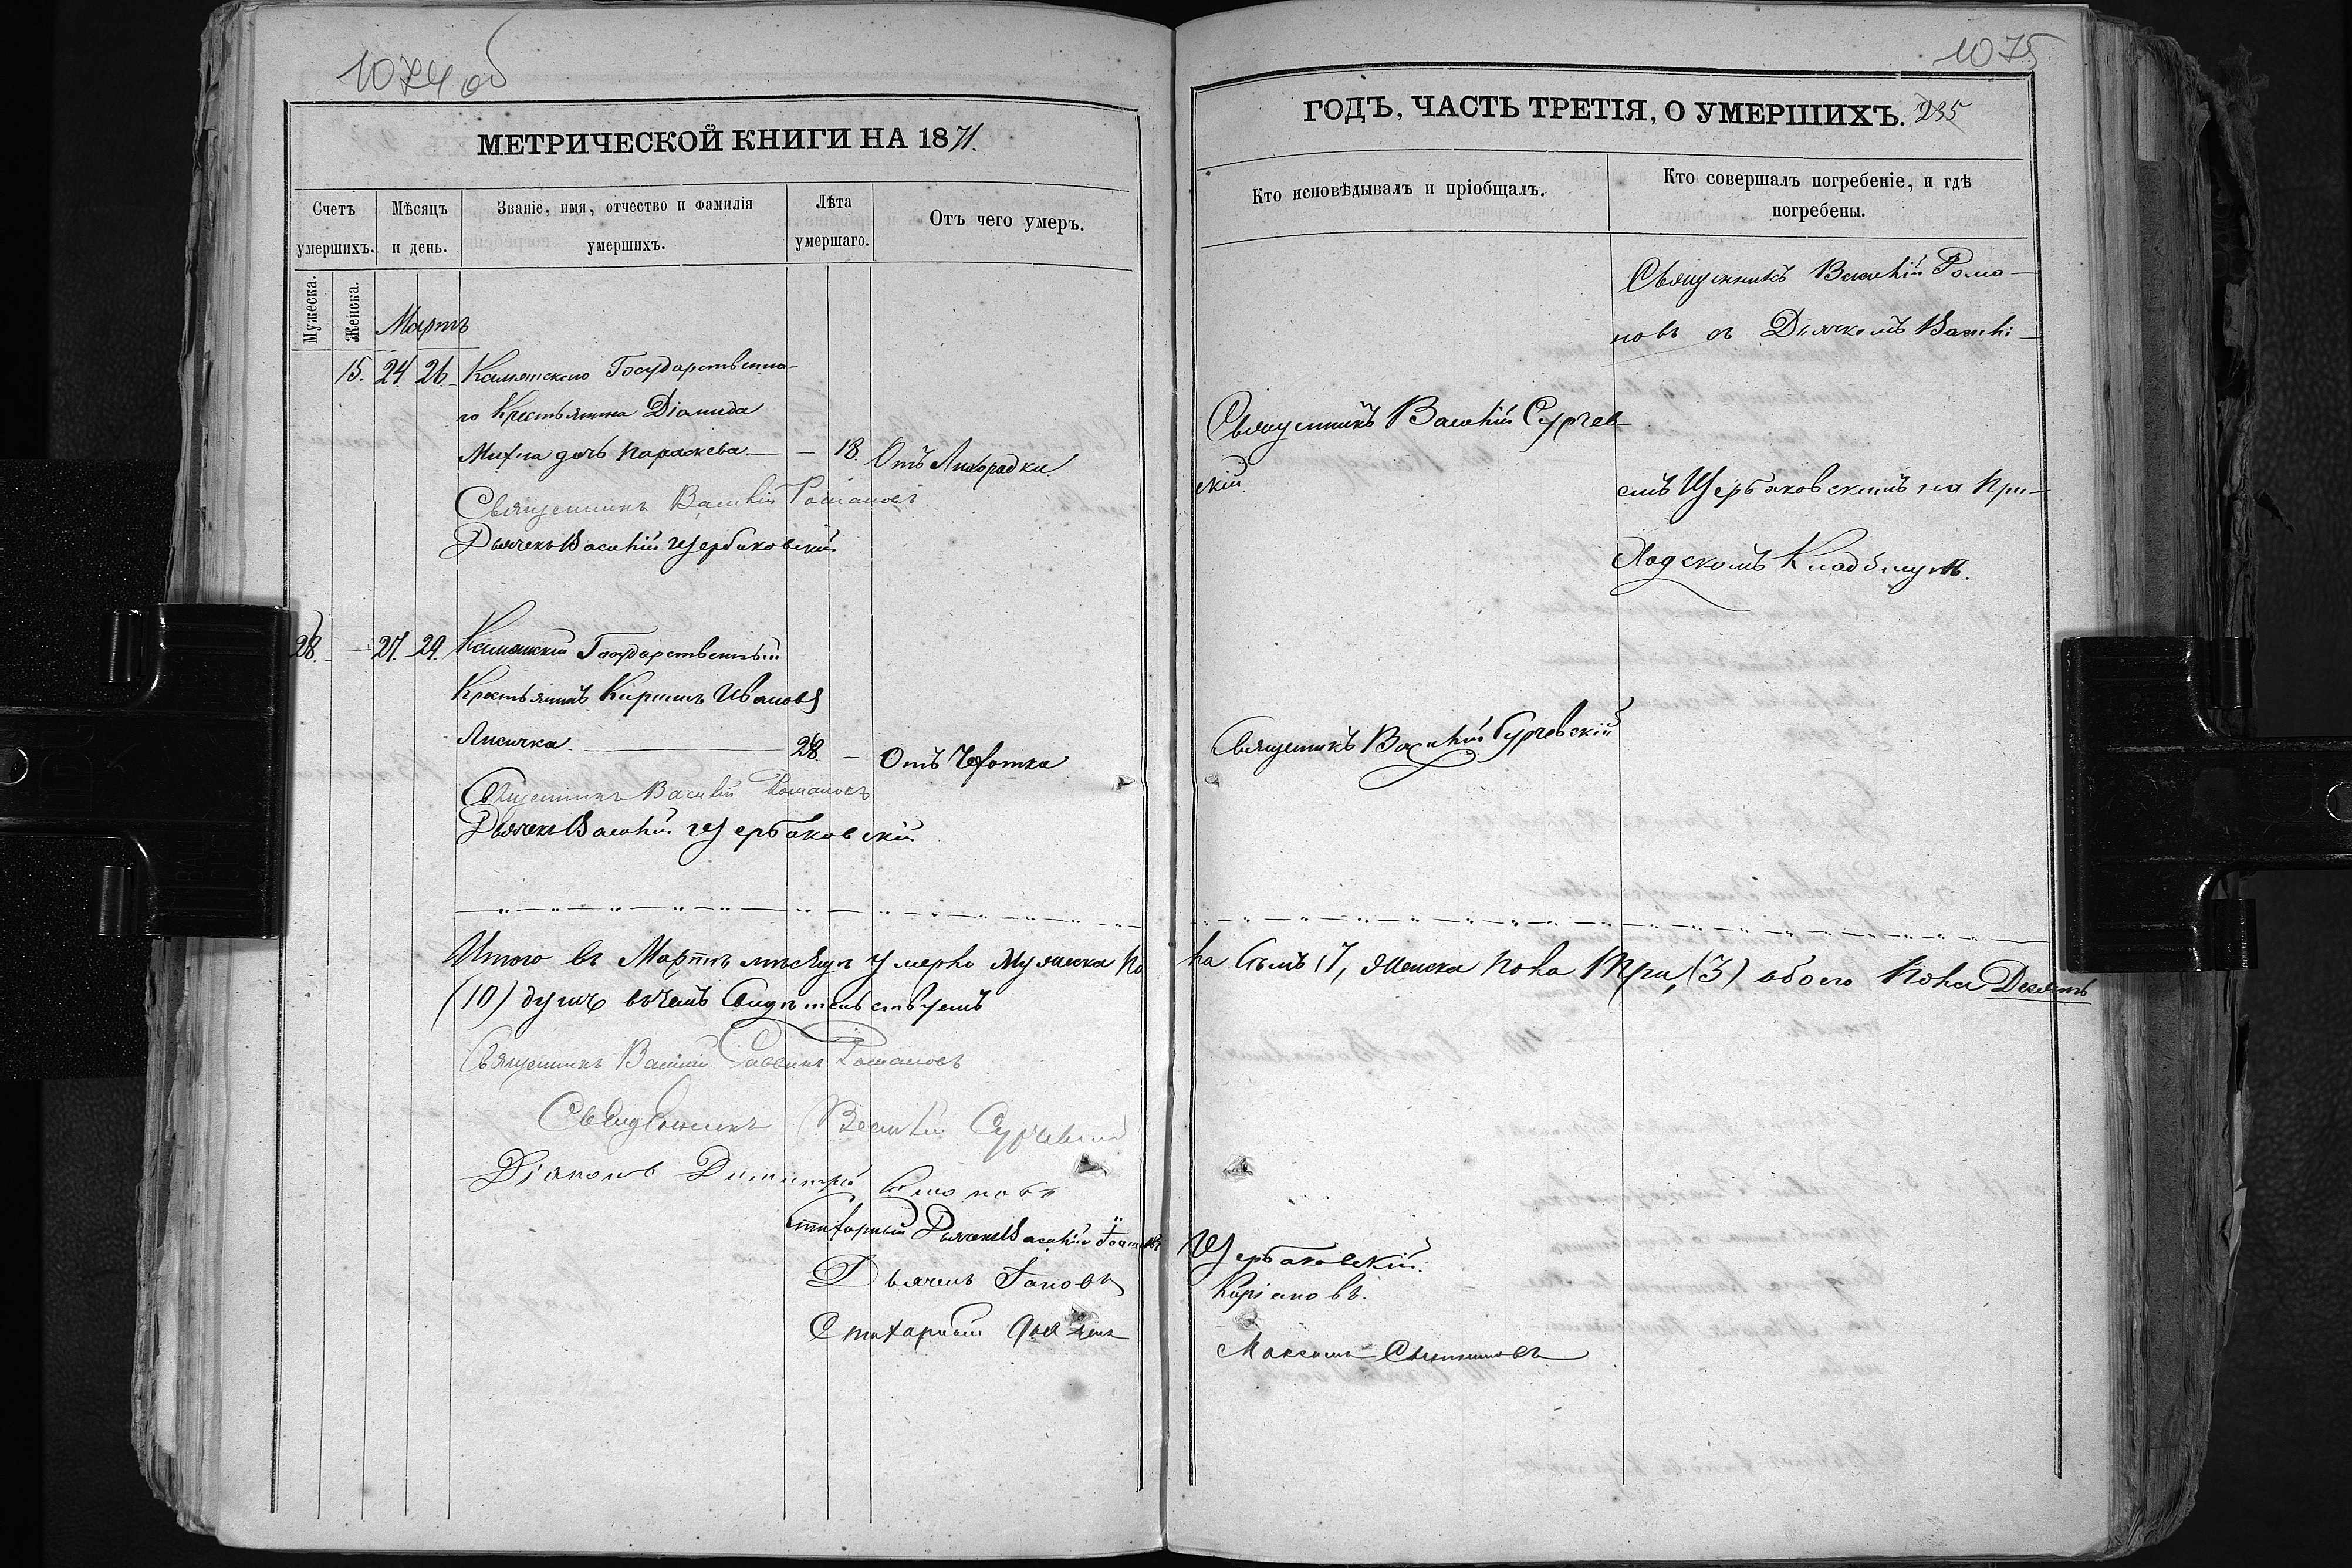 1074 об
МЕТРИЧЕСКОЙ КНИГИ НА 1871.
Счетъ умершихъ.
Мѣсяцъ и день.
Званіе, имя, отчество и фамилія умершихъ.
Лѣта умершаго.
Отъ чего умеръ.
Мужеска.
Женска.
Мартъ
15. 24. 26. Государственна-
го Крестьянина Діомида
дочь Параскева — — 18. Отъ Лихорадки
Священникъ Василій Романовъ
Дьячекъ Василій Щербаковскій
28. — 27. 29. Государственный
Крестьянинъ Кирилъ Ивановъ
Лисичка — 28. — Отъ Чахотки
Священникъ Василій Романовъ
Дьячекъ Василій Щербаковскій
Итого въ Мартѣ мѣсяцѣ умерло Мужеска по
(10) душъ въ чемъ Свидѣтельствуемъ
Священникъ Василій Саввинъ Романовъ
Священникъ Василій Сурчевскій
Діаконъ Димитрій
Стихарный Дьячекъ Василій
Дьячекъ Іаковъ
Стихарный дьячекъ
1075
ГОДЪ, ЧАСТЬ ТРЕТІЯ, О УМЕРШИХЪ. 235
Кто исповѣдывалъ и пріобщалъ.
Кто совершалъ погребеніе, и гдѣ погребены.
Священникъ Василій Рома-
новъ съ Дьячкомъ Василі-
Священникъ Василій Сурчев-
скій.
емъ Щербаковскимъ на При-
ходскомъ Кладбищѣ.
Священникъ Василій Сурчевскій
ла Семь (7, Женска пола Три, (3) обоего пола Десять
Щербаковскій.
Киріяковъ.
Максимъ